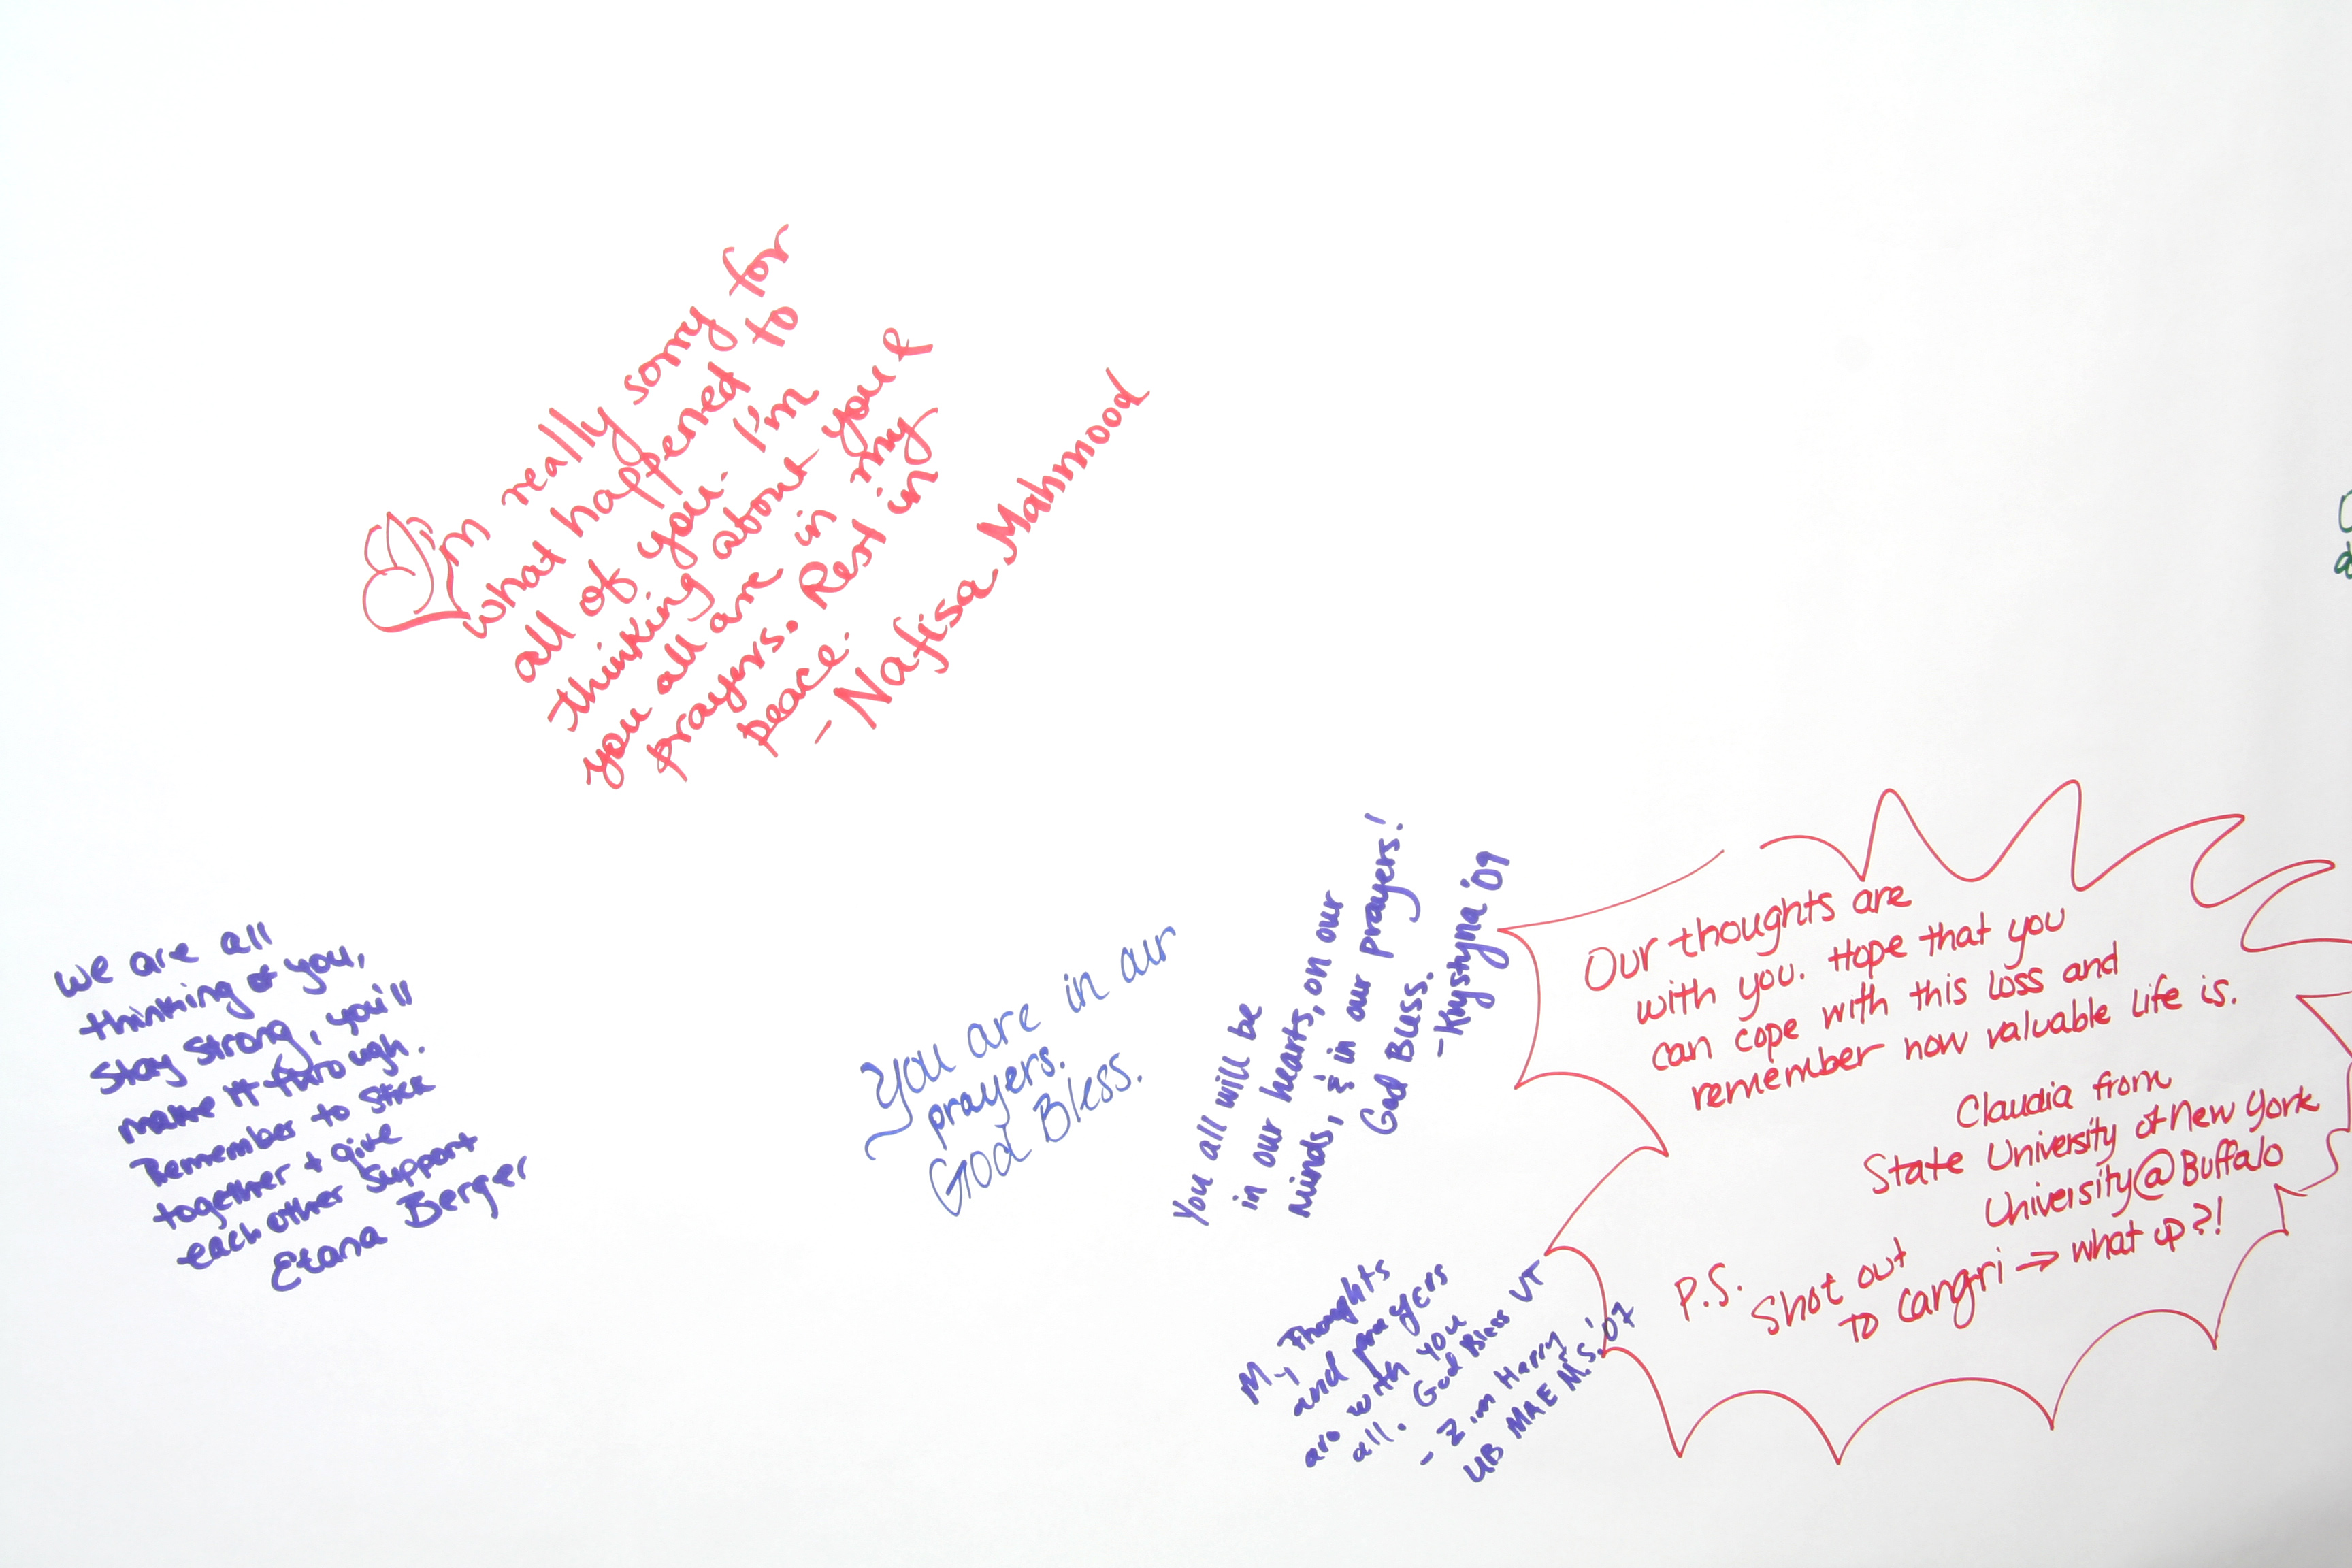 I'm really sorry for
what happened to
all of you. I'm
thinking about you &
you all are in my
prayers. Rest in
peace.
- Nafisa Mahmood
We are all
thinking of you,
Stay strong, you'll
make it through.
Remember to stick
together + give
each other support
Etana Berger
You are in our
prayers.
God Bless.
You all will be
in our hearts, on our
minds, & in our prayers!
God Bless.
- Krystyna '09
My Thoughts
and prayers
are with you
all. God Bless VT
- Zim Harry
UB MAE M.S.'07
Our thoughts are
with you. Hope that you
can cope with this loss and
remember how valuable life is.
Claudia from
State University of New York
University@Buffalo
P.S. Shot out
to cangri → what up?!